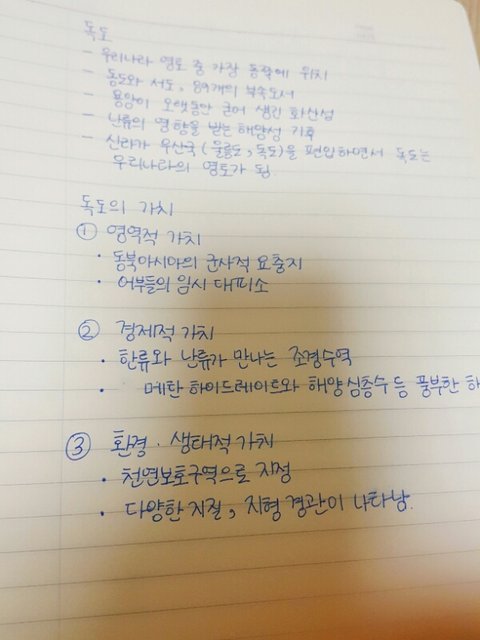 독도
- 우리나라 영토 중 가장 동쪽에 위치
- 동도와 서도, 89개의 부속도서
- 용암이 오랫동안 굳어 생긴 화산섬
- 난류의 영향을 받는 해양성 기후
- 신라가 우산국(울릉도, 독도)을 편입하면서 독도는
우리나라의 영토가 됨
독도의 가치
① 영역적 가치
· 동북아시아의 군사적 요충지
· 어부들의 임시 대피소
② 경제적 가치
· 한류와 난류가 만나는 조경수역
· 메탄 하이드레이트와 해양 심층수 등 풍부한 해
③ 환경 · 생태적 가치
· 천연보호구역으로 지정
· 다양한 지질, 지형 경관이 나타남.